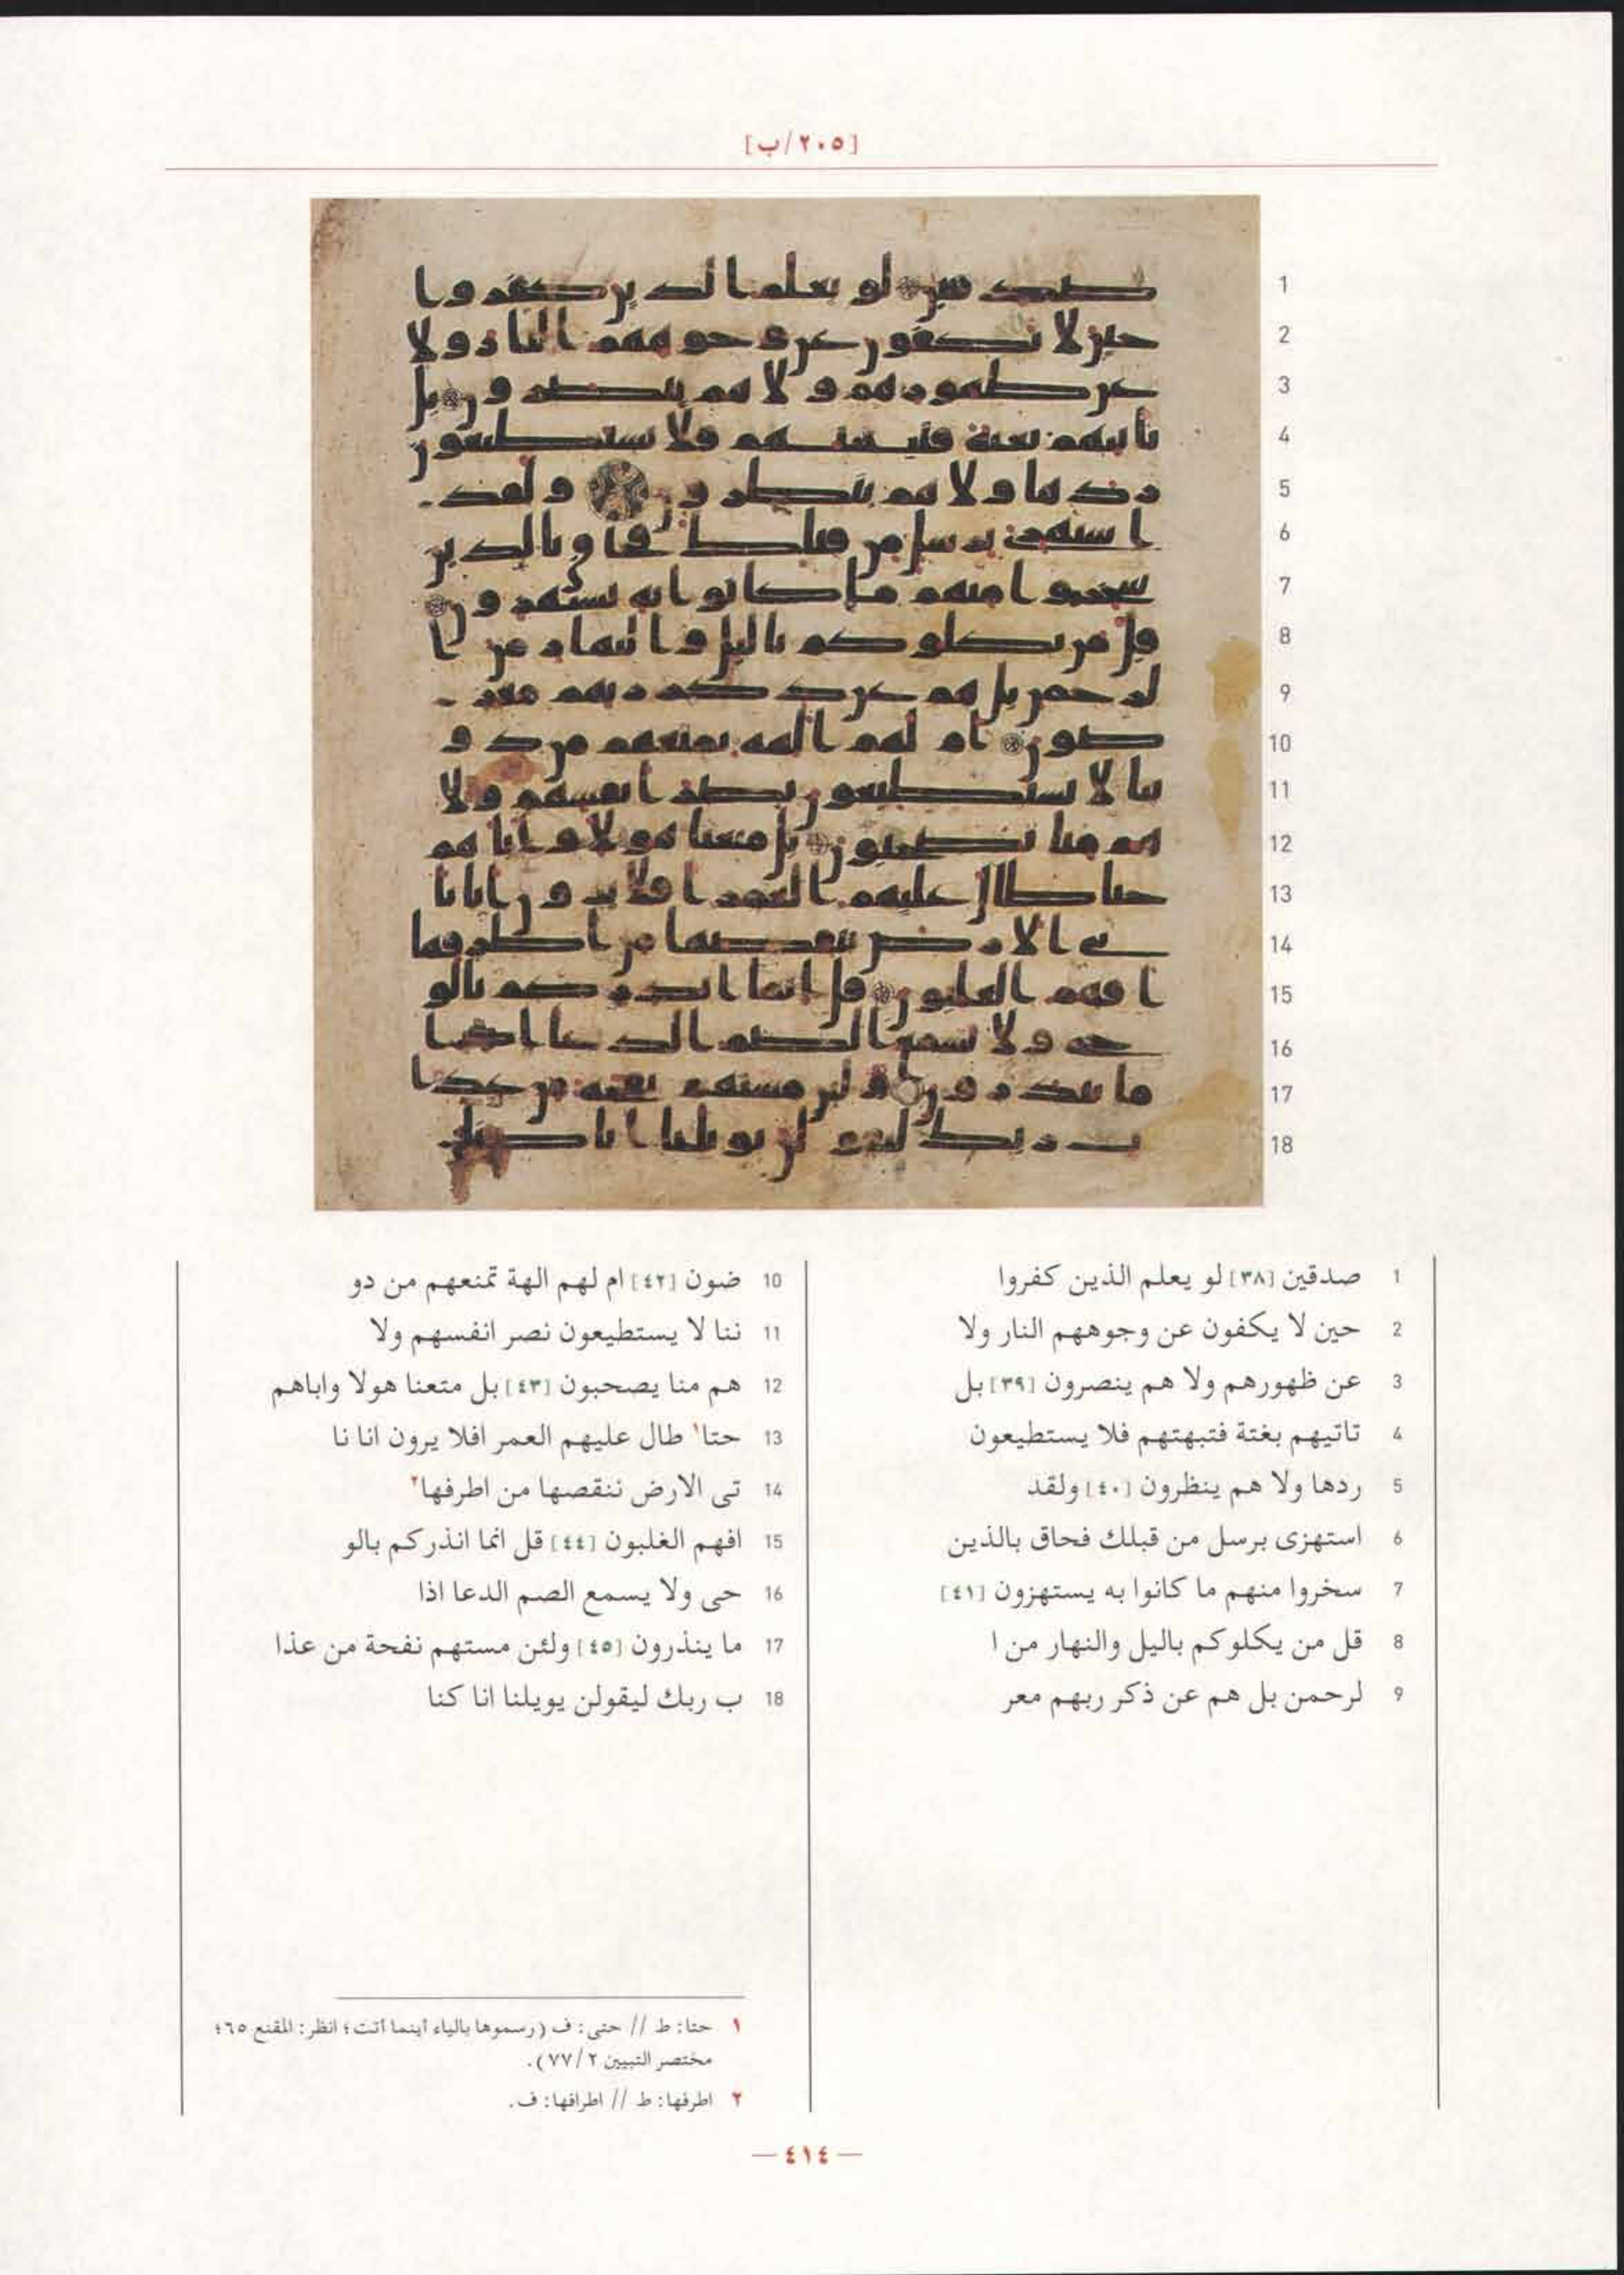 [٢٠٥/ب]
1 صدقين [٣٨] لو يعلم الذين كفروا
2 حين لا يكفون عن وجوههم النار ولا
3 عن ظهورهم ولا هم ينصرون [٣٩] بل
4 تاتيهم بغتة فتبهتهم فلا يستطيعون
5 ردها ولا هم ينظرون [٤٠] ولقد
6 استهزى برسل من قبلك فحاق بالذين
7 سخروا منهم ما كانوا به يستهزون [٤١]
8 قل من يكلوكم باليل والنهار من ا
9 لرحمن بل هم عن ذكر ربهم معر
10 ضون [٤٢] ام لهم الهة تمنعهم من دو
11 ننا لا يستطيعون نصر انفسهم ولا
12 هم منا يصحبون [٤٣] بل متعنا هولا واباهم
13 حتا١ طال عليهم العمر افلا يرون انا نا
14 تى الارض ننقصها من اطرفها٢
15 افهم الغلبون [٤٤] قل انما انذركم بالو
16 حى ولا يسمع الصم الدعا اذا
17 ما ينذرون [٤٥] ولئن مستهم نفحة من عذا
18 ب ربك ليقولن يويلنا انا كنا
١ حتا: ط // حتى: ف (رسموها بالياء أينما أتت؛ انظر: المقنع ٦٥؛
مختصر التبيين ٢/٧٧).
٢ اطرفها: ط // اطرافها: ف.
— ٤١٤ —